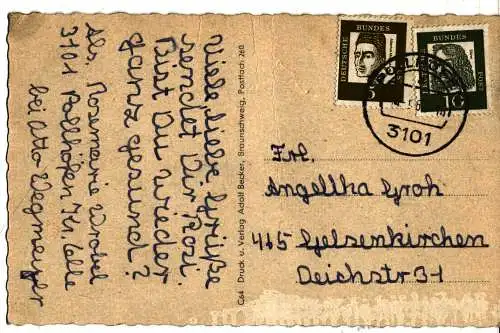 Viele, liebe Grüße
sendet Dir, Rosi.
Bist Du wieder
ganz gesund?
Abs. Rosemarie Wrobel
3101 Pollhöfen Kr. Celle
bei Otto Wegmeyer
C64 Druck u. Verlag Adolf Becker, Braunschweig, Postfach 260
DEUTSCHE BUNDES POST
5
DEUTSCHE BUNDES POST
10
3101
Frl.
Angelika Groh
465 Gelsenkirchen
Deichstr 31